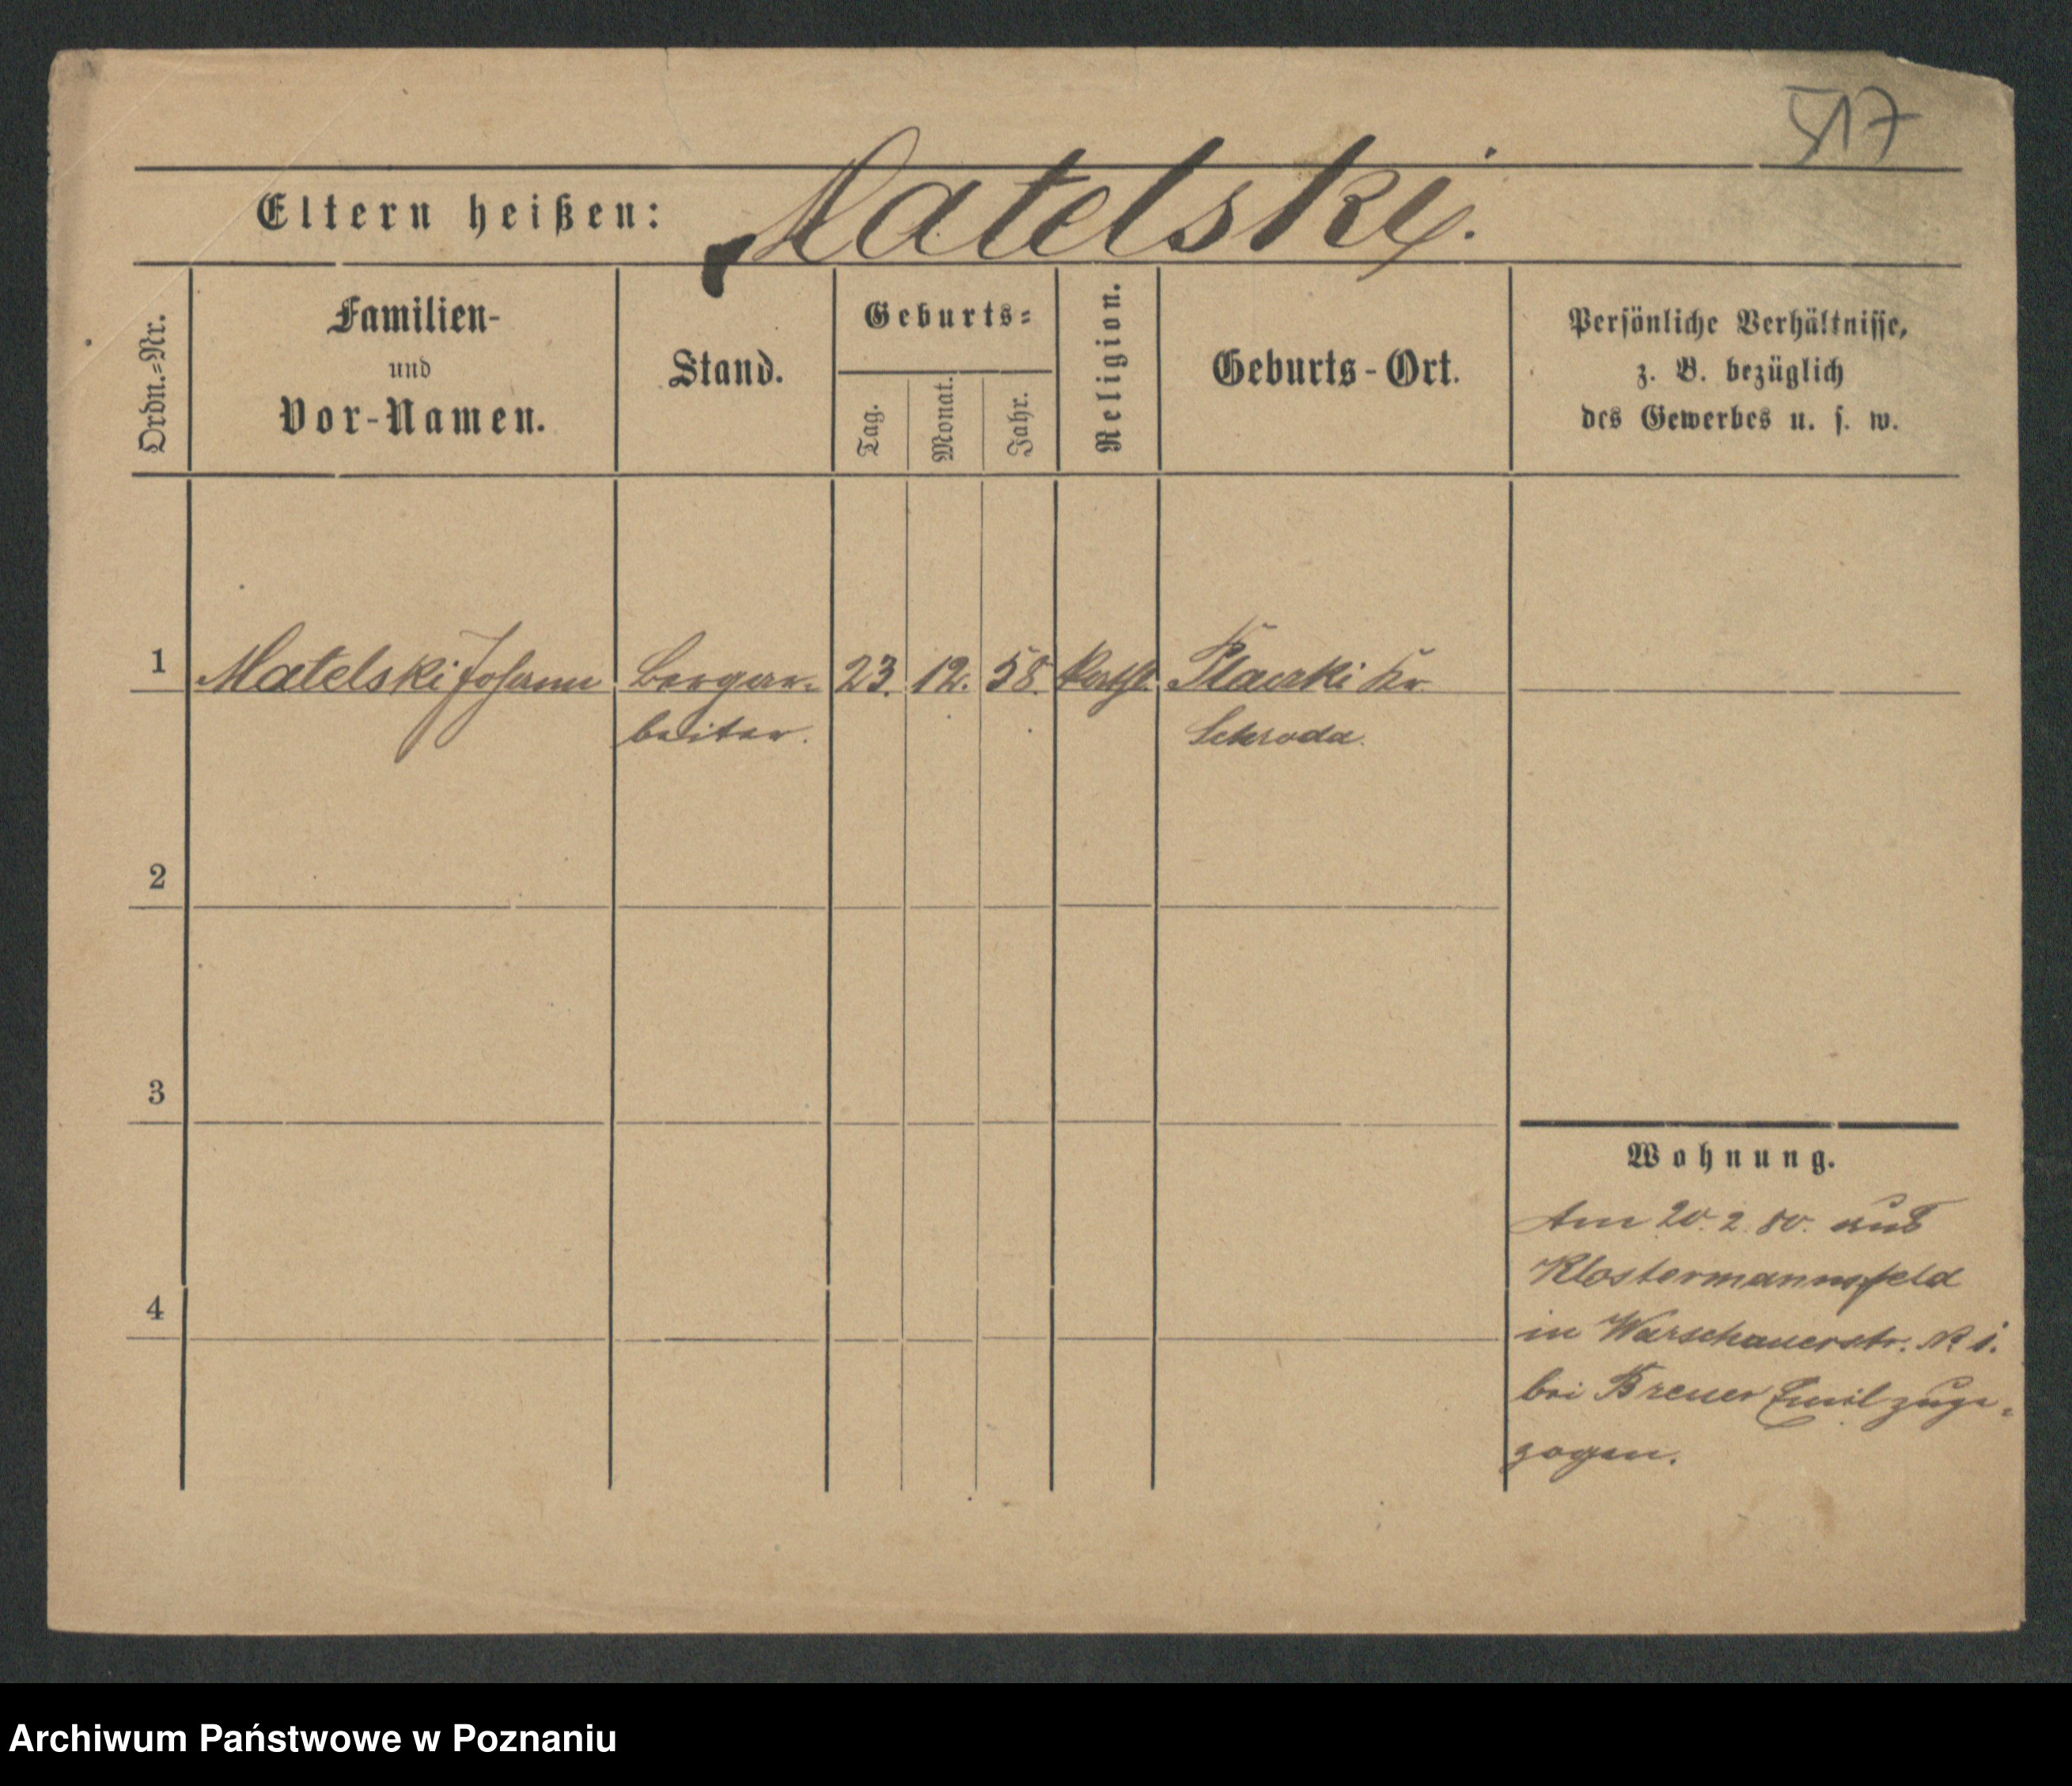 517
Eltern heißen: Matelski.
Ordn.=Nr.
Familien-
und
Vor-Namen.
Stand.
Geburts=
Tag.
Monat.
Jahr.
Religion.
Geburts-Ort.
Persönliche Verhältnisse,
z. B. bezüglich
des Gewerbes u. s. w.
1 Matelski Johann Bergar= 23. 12. 58. kath. Placzki Kr.
beiter. Schroda.
2
3
4
Wohnung.
Am 20. 2. 80. aus
Klostermannsfeld
in Warschauerstr. № 1.
bei Breuer Emil zuge=
zogen.
Archiwum Państwowe w Poznaniu